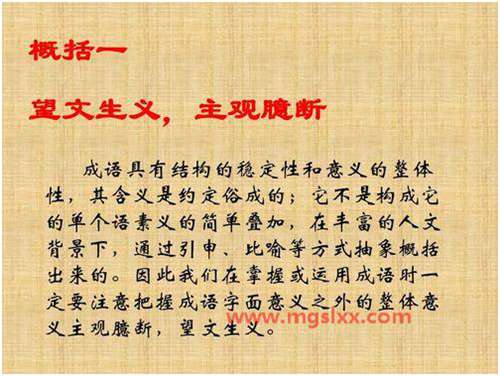 概括一
望文生义，主观臆断
成语具有结构的稳定性和意义的整体
性，其含义是约定俗成的；它不是构成它
的单个语素义的简单叠加，在丰富的人文
背景下，通过引申、比喻等方式抽象概括
出来的。因此我们在掌握或运用成语时一
定要注意把握成语字面意义之外的整体意
义主观臆断，望文生义。
www.mgslxx.com